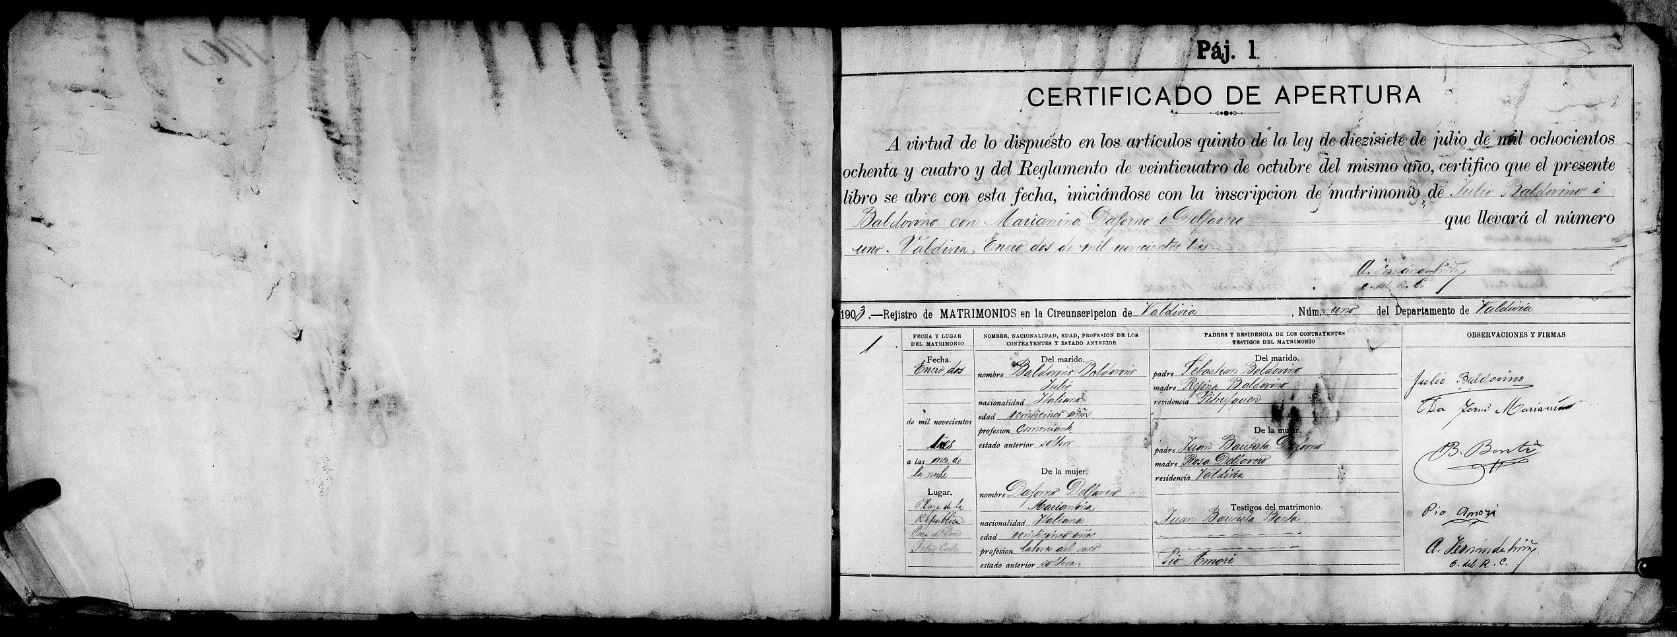 Páj. 1
CERTIFICADO DE APERTURA
A virtud de lo dispuesto en los artículos quinto de la ley de diezisiete de julio de mil ochocientos
ochenta y cuatro y del Reglamento de veinticuatro de octubre del mismo año, certifico que el presente
libro se abre con esta fecha, iniciándose con la inscripcion de matrimonio de Julio Baldovino i
Baldovino con Marianina Daforno i Delfavero que llevará el número
uno. Valdivia, Enero dos de mil novecientos tres
O. del R. C.
1903.—Rejistro de MATRIMONIOS en la Circunscripcion de Valdivia, Núm. uno del Departamento de Valdivia
1
FECHA Y LUGAR
DEL MATRIMONIO
Fecha.
Enero dos
de mil novecientos
tres
a las once de
la noche
Lugar.
Plaza de la
República
NOMBRE, NACIONALIDAD, EDAD, PROFESION DE LOS
CONTRAYENTES Y ESTADO ANTERIOR
Del marido.
nombre Baldovino Baldovino
Julio
nacionalidad Italiano
edad años
profesion comerciante
estado anterior soltero
De la mujer.
nombre Daforno Delfavero
Marianina
nacionalidad Italiana
edad años
profesion labores del sexo
estado anterior soltera
PADRES Y RESIDENCIA DE LOS CONTRAYENTES
TESTIGOS DEL MATRIMONIO
Del marido.
padre Sebastian Baldovino
madre Regina Baldovino
residencia Pitrufquen
De la mujer.
padre Juan Bautista Daforno
madre Rosa Delfavero
residencia Valdivia
Testigos del matrimonio.
Juan Bautista Bonta
Pio Amori
OBSERVACIONES Y FIRMAS
Julio Baldovino
Da Forno Marianina
Pio Amori
O. del R. C.